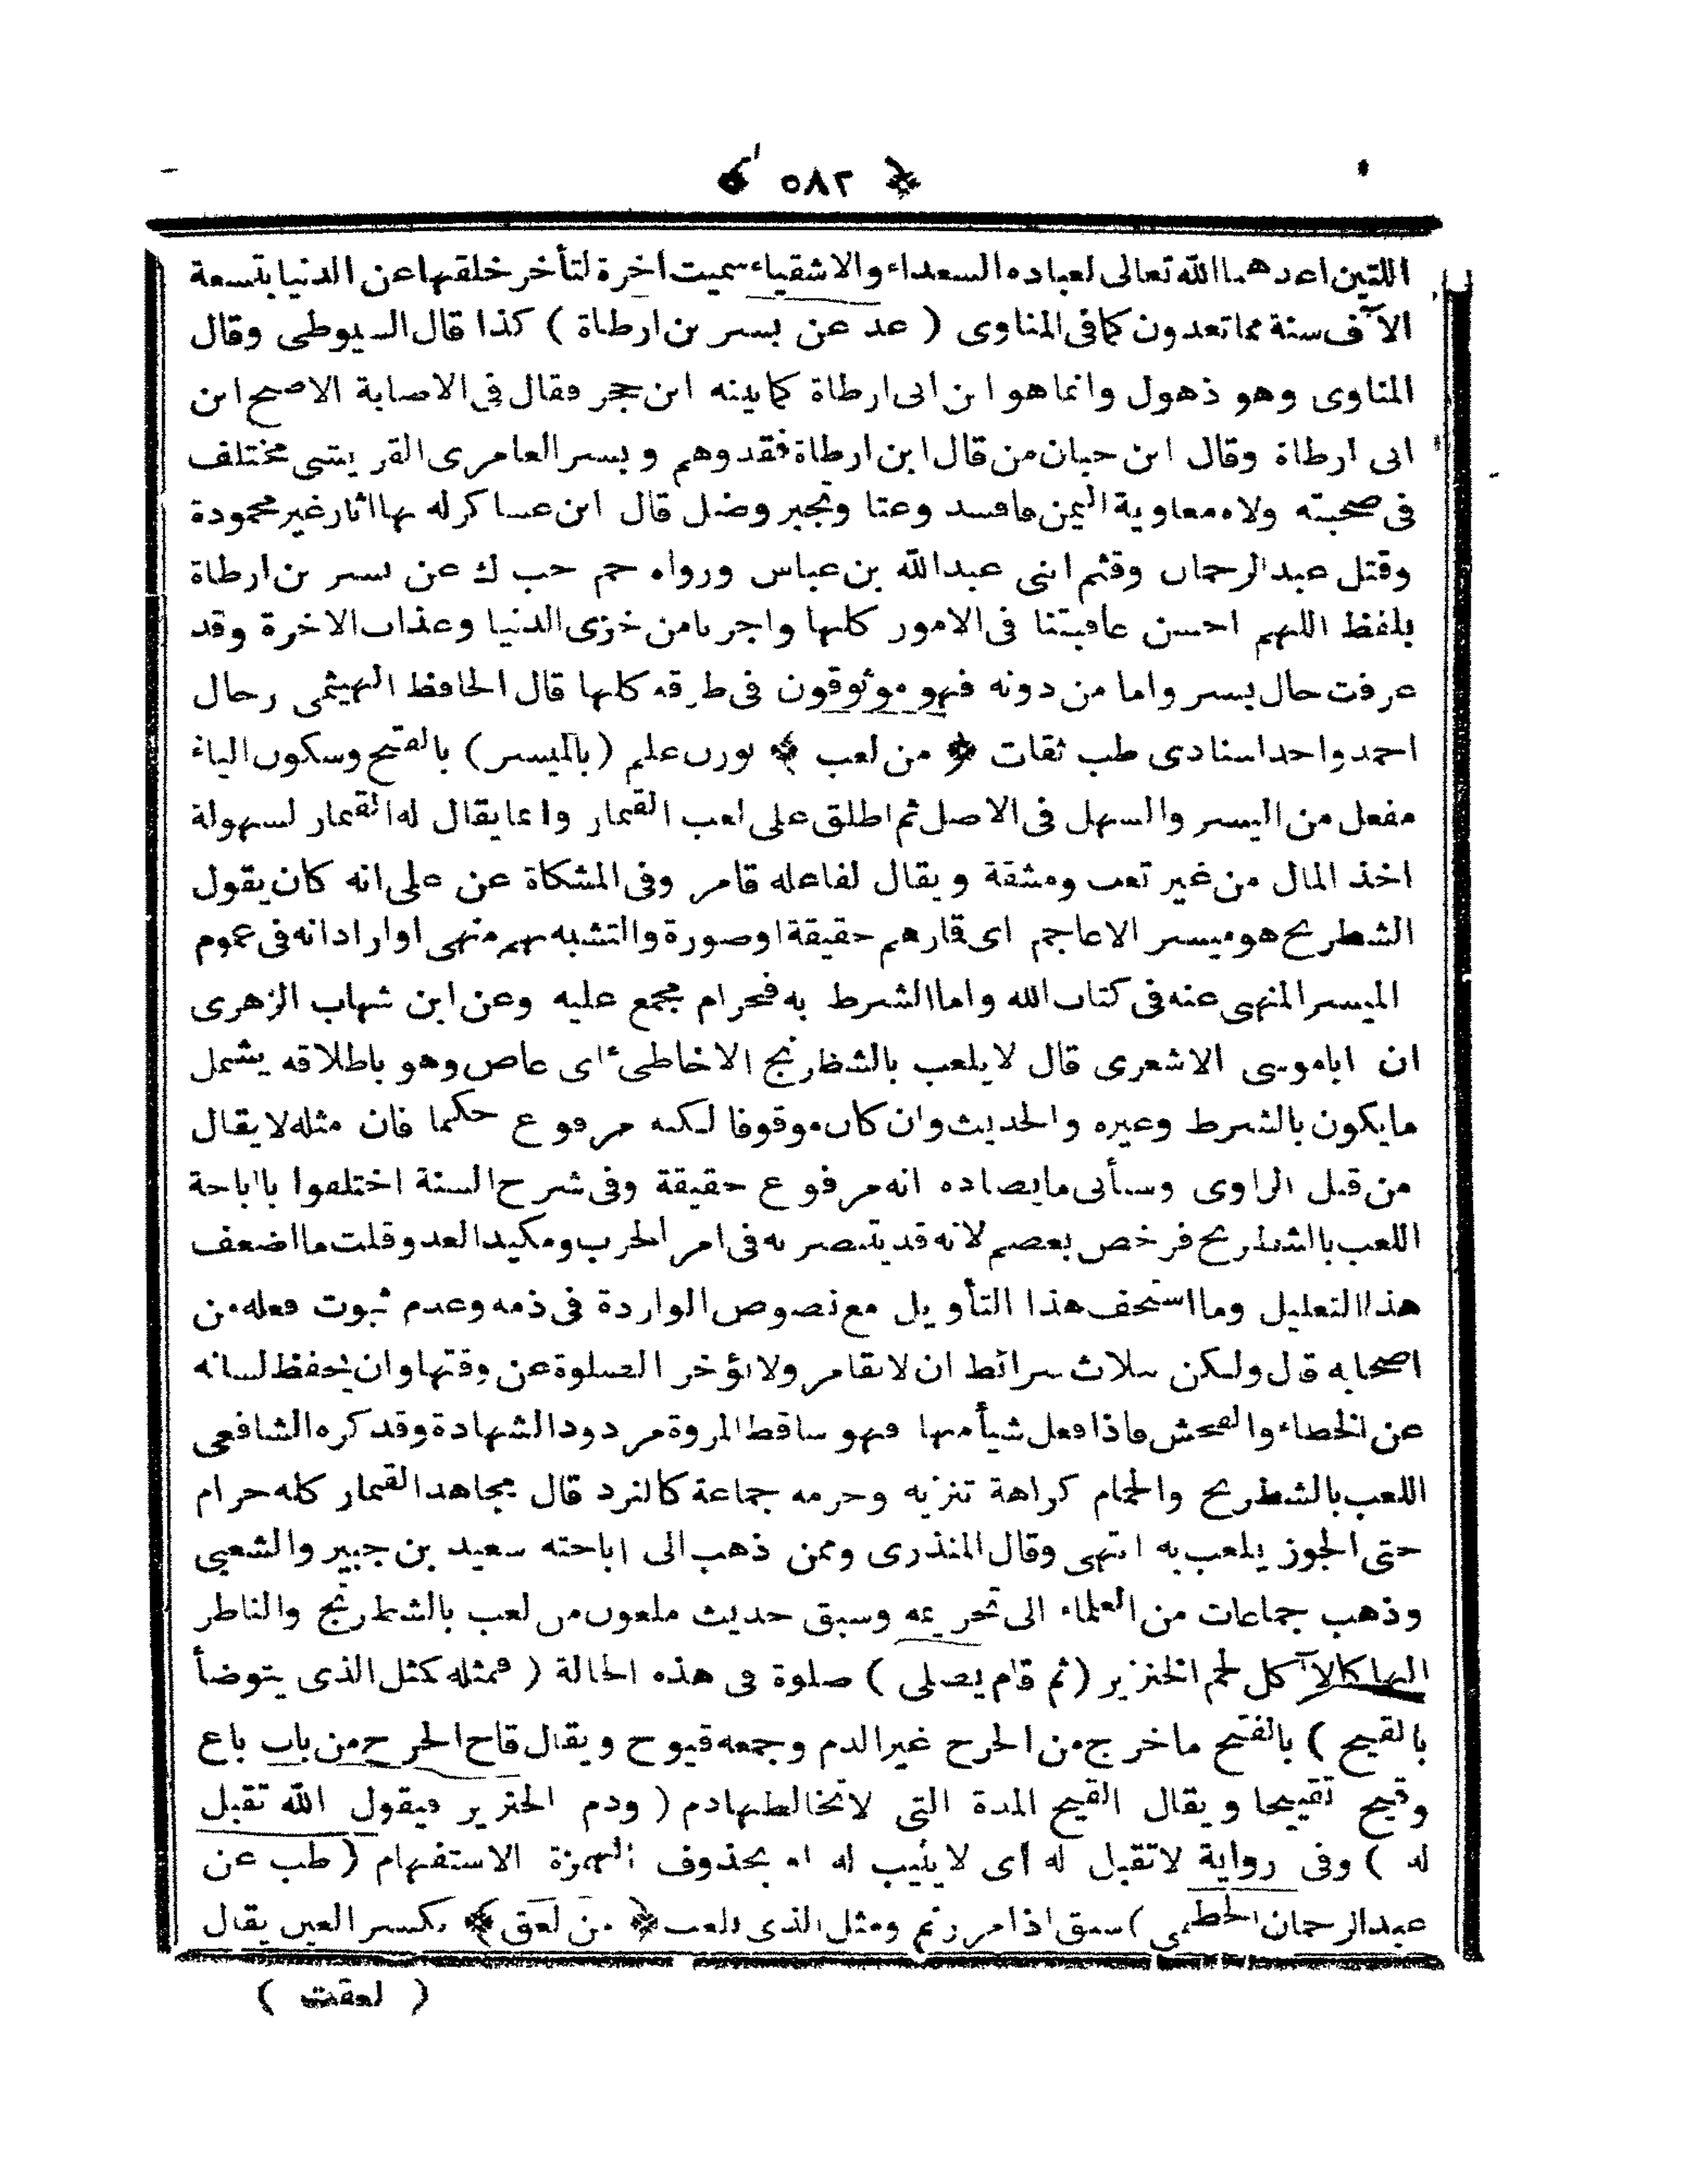 ﴿ ٥٨٢ ﴾
اللتين اعدهما الله تعالى لعباده السعداء والاشقياء سميت اخرة لتأخر خلقها عن الدنيا بتسعة
الآف سنة مما تعدون كما فى المناوى ( عد عن بسر بن ارطاة ) كذا قال السيوطى وقال
المناوى وهو ذهول وانما هو ابن ابى ارطاة كما بينه ابن حجر فقال فى الاصابة الاصح ابن
ابى ارطاة وقال ابن حبان من قال ابن ارطاة فقد وهم وبسر العامرى القريشى مختلف
فى صحبته ولاه معاوية اليمن فافسد وعتا وتجبر وضل قال ابن عساكر له بها اثار غير محمودة
وقتل عبد الرحمان وقثم ابنى عبدالله بن عباس ورواه حم حب ك عن بسر بن ارطاة
بلفظ اللهم احسن عاقبتنا فى الامور كلها واجرنا من خزى الدنيا وعذاب الاخرة وقد
عرفت حال بسر واما من دونه فهو موثوقون فى طرقه كلها قال الحافظ الهيثمى رجال
احمد واحد اسنادى طب ثقات ﴿ من لعب ﴾ بوزن علم (بالميسر) بالفتح وسكون الياء
مفعل من اليسر والسهل فى الاصل ثم اطلق على لعب القمار وانما يقال له القمار لسهولة
اخذ المال من غير تعب ومشقة ويقال لفاعله قامر وفى المشكاة عن على انه كان يقول
الشطرنج هو ميسر الاعاجم اى قارهم حقيقة او صورة والتشبه بهم منهى او اراد انه فى عموم
الميسر المنهى عنه فى كتاب الله واما الشرط به فحرام مجمع عليه وعن ابن شهاب الزهرى
ان اباموسى الاشعرى قال لا يلعب بالشظرنج الاخاطئ اى عاص وهو باطلاقه يشمل
ما يكون بالشرط وغيره والحديث وان كان موقوفا لكنه مرفوع حكما فان مثله لا يقال
من قبل الراوى وسأتى ما يصاده انه مرفوع حقيقة وفى شرح السنة اختلفوا با اباحة
اللعب بالشطرنج فرخص بعضهم لانه قد يتبصر به فى امر الحرب ومكيد العدو قلت ما اضعف
هذا التعليل وما اسخف هذا التأويل مع نصوص الواردة فى ذمه وعدم ثبوت فعله من
اصحابه قال ولكن بثلاث شرائط ان لا يقامر ولا يؤخر الصلوة عن وقتها وان يحفظ لسانه
عن الخطاء والفحش فاذا فعل شيأ منها فهو ساقط المروة مردود الشهادة وقد كره الشافعى
اللعب بالشطرنج والحمام كراهة تنزيه وحرمه جماعة كالنرد قال مجاهد القمار كله حرام
حتى الجوز يلعب به انتهى وقال المنذرى وممن ذهب الى اباحته سعيد بن جبير والشعبى
وذهب جماعات من العلماء الى تحريمه وسبق حديث ملعون من لعب بالشطرنج والناظر
اليها كالاآكل لحم الخنزير (ثم قام يصلى ) صلوة فى هذه الحالة ( فمثله كمثل الذى يتوضأ
بالقيح ) بالفتح ما خرج من الجرح غير الدم وجمعه قيوح ويقال قاح الجرح من باب باع
وقيح تقييحا ويقال القيح المدة التى لا تخالطها دم ( ودم الخنزير فيقول الله تقبل
له ) وفى رواية لا تقبل له أى لا يثيب له اه بحذوف الهمزة الاستفهام ( طب عن
عبدالرحمان الخطمى ) سبق اذا مررتم ومثل الذى يلعب ﴿ من لعق ﴾ بكسر العين يقال
( لعقت )